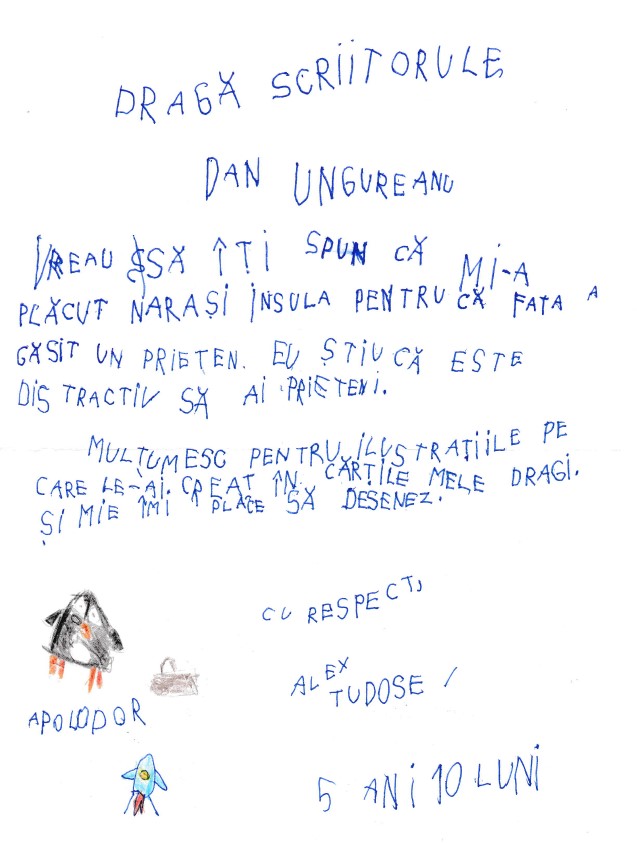 DRAGĂ SCRIITORULE
DAN UNGUREANU
VREAU SSĂ ÎȚI SPUN CĂ MI-A
PLĂCUT NARA ȘI INSULA PENTRU CĂ FATA A
GĂSIT UN PRIETEN. EU ȘTIU CĂ ESTE
DISTRACTIV SĂ AI PRIETENI.
MULȚUMESC PENTRU ILUSTRAȚIILE PE
CARE LE-AI CREAT ÎN CĂRȚILE MELE DRAGI.
ȘI MIE ÎMI PLACE SĂ DESENEZ.
CU RESPECT,
ALEX
TUDOSE /
APOLODOR
5 ANI 10 LUNI